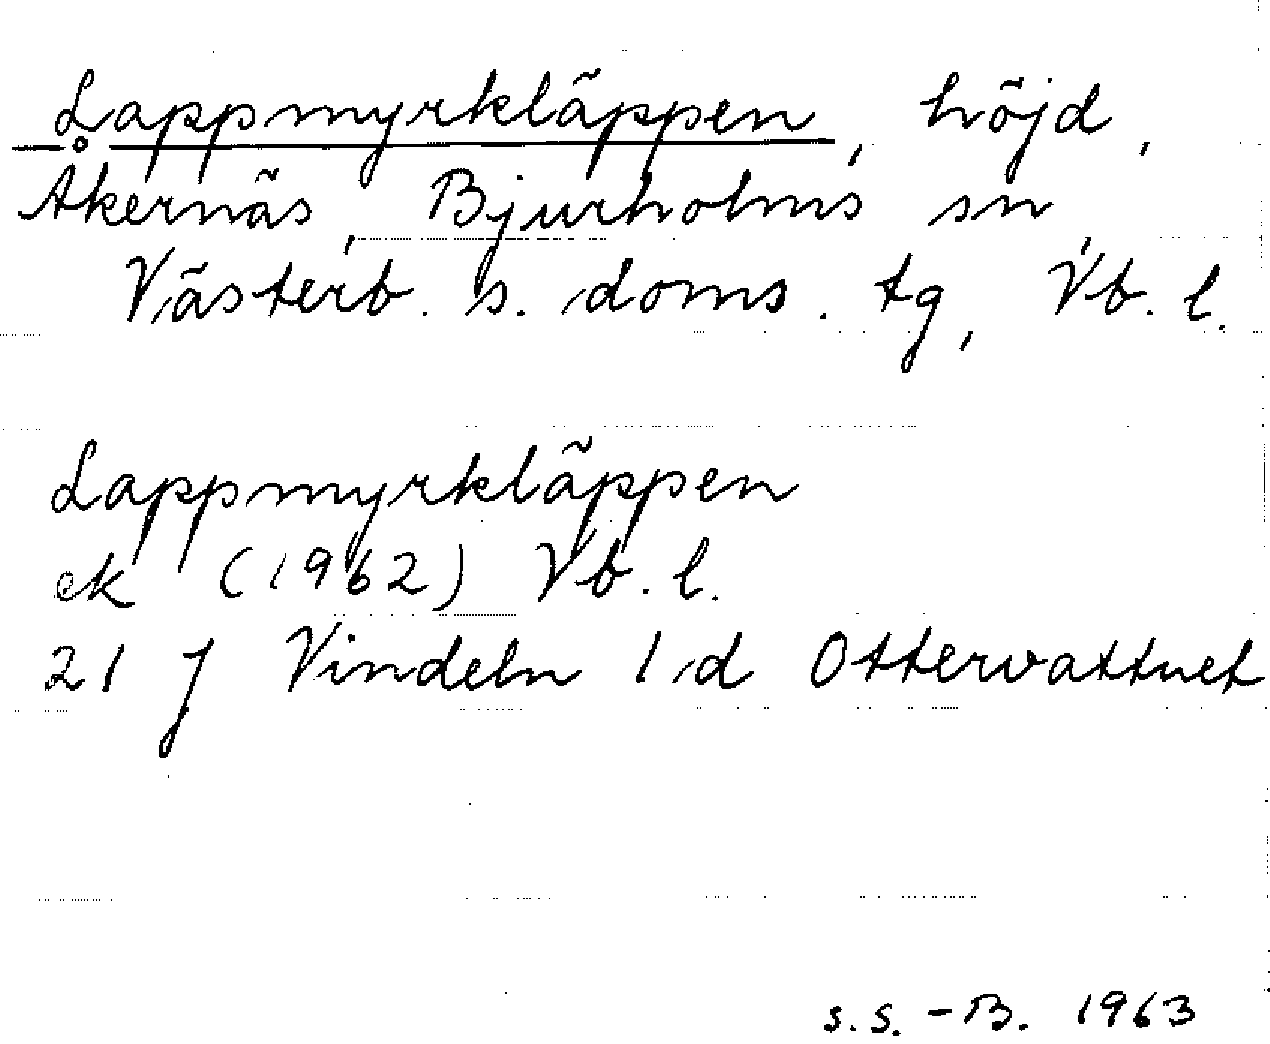 Lappmyrkläppen, höjd,
Åkernäs, Bjurholms sn,
Västerb. s. doms. tg, Vb. l.
Lappmyrkläppen
ek (1962) Vb. l.
21 J Vindeln 1 d Ottervattnet
s.s.-B. 1963